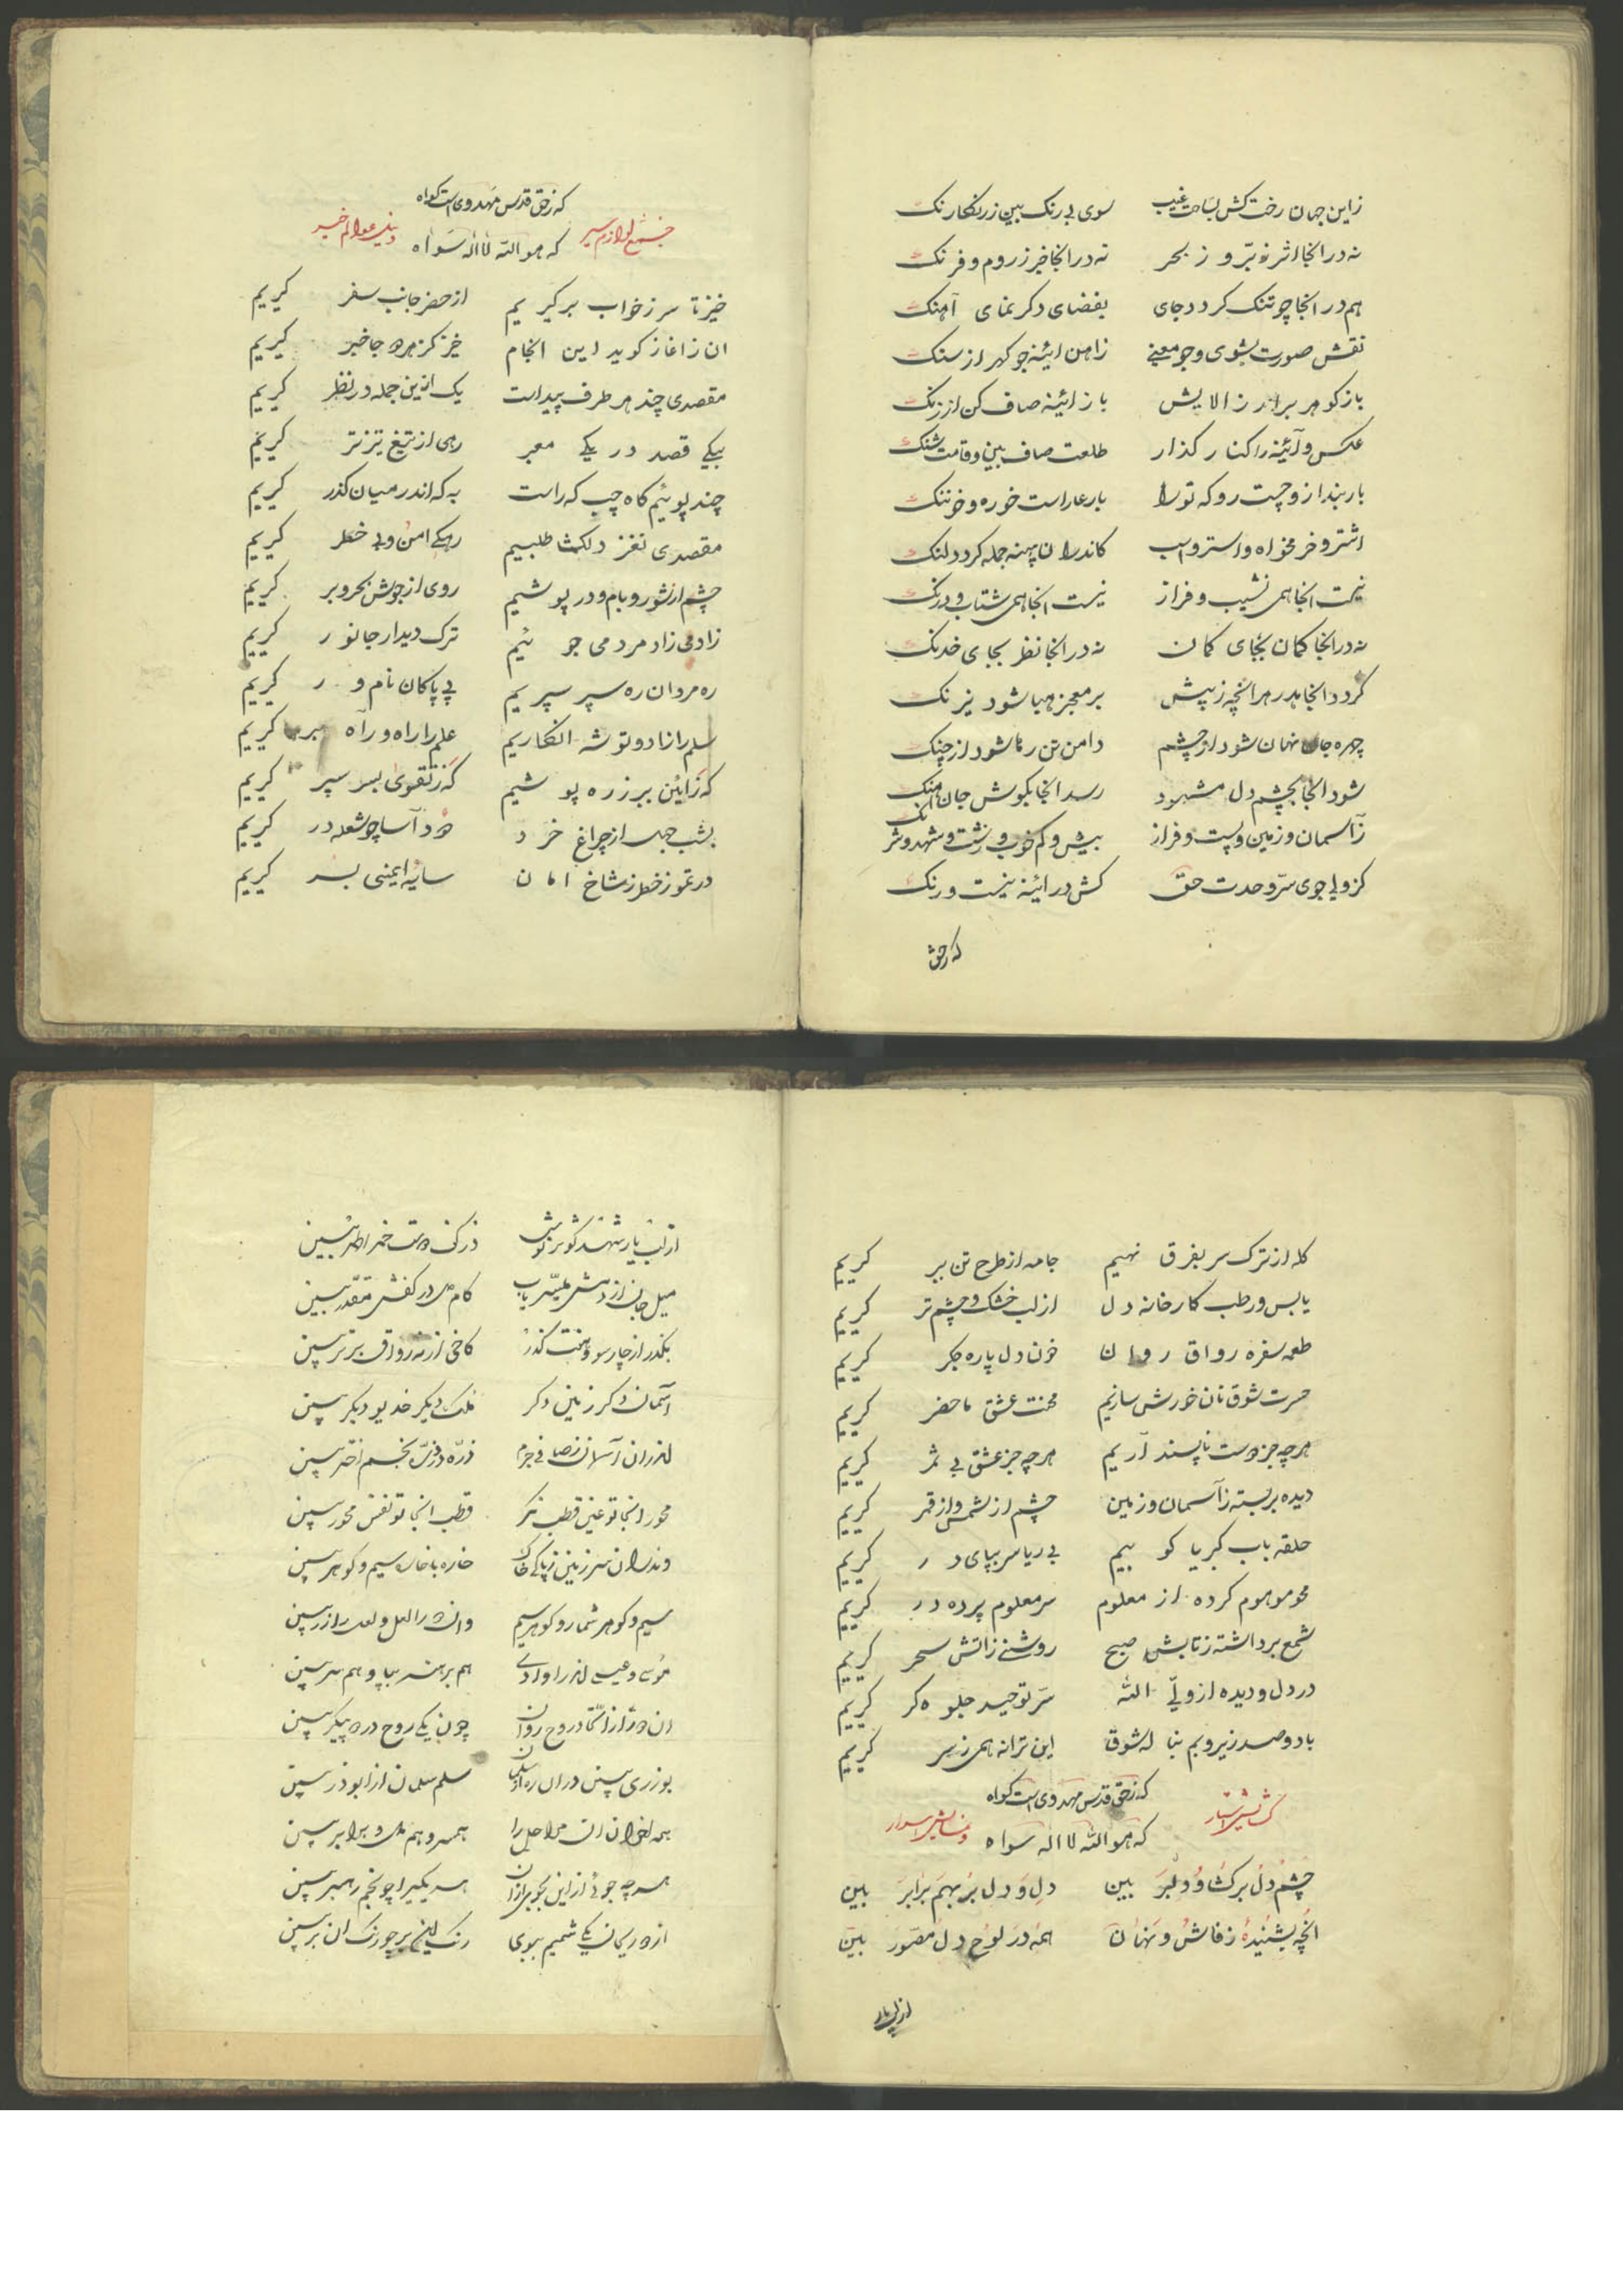 زاین جهان رخت کش بساحت غیب سوی بی رنک بین ززنکار رنک
نه در انجا اثر نه بر و ز بحر نه در انجا خبر ز روم و فرنک
هم در انجا چو تنک کردد جای بفضای دکر نمای آهنک
نقش صورت بشوی و جو معنی زاهن ائینه جو کهر از سنک
باز کوهر برار ز الایش باز ائینه صاف کن از زنک
عکس و آئینه را کنار کذار طلعت صاف بین و قامت شنک
بار بنداز و چست رو که تو را بار عار است خوره و خرننک
اشتر و خر مخواه و استر و اسب کاندران پهنه جمله کردد لنک
نیست انجا همی نشیب و فراز نیست انجا همی شتاب و درنک
نه در انجا کمان بجای کمان نه در انجا نظر بجای خدنک
کردد انجا هدر هر انچه ز پیش بر معجز هبا شود نیرنک
چهره جان نهان شود از چشم دامن تن رها شود از چنک
شود انجا بچشم دل مشهود رسد انجا بکوش جان آهنک
زآسمان و زمین و پست و فراز بیش و کم خوب و زشت و شهد و شرنک
کز ولی جوی سرّ وحدت حق کش در ائینه نیست و رنک
که زحق
که زحق قدس مهدوی است کواه
که هو الله لا اله سواه
خیز تا سر ز خواب برکیریم از حضر جانب سفر کیریم
ان ز اغاز کوید این انجام خبر کز هر دو جا خبر کیریم
مقصدی چند هر طرف پیداست یک ازین جمله در نظر کیریم
بیکی قصد در یکی معبر رهی از تیغ تیزتر کیریم
چند پوئیم کاه چپ که راست به که اندر میان کذر کیریم
مقصدی نغز دلکشا طلبیم رهکی امن و بی خطر کیریم
چشم از شور و بام و در پوشیم روی از جوش بحر و بر کیریم
زادمی زاد مردمی جوئیم ترک دیدار جانور کیریم
ره مردان ره سپر سپریم پی پاکان نامور کیریم
سلم را زاد و توشه انکاریم علم را راه و راه بر کیریم
که ز ائین ببر زره پوشیم که ز تقوی بسر سپر کیریم
بشب جهل از چراغ خرد دود آسا چو شعله در کیریم
در تموز خطر ز شاخ امان سایه ایمنی بسر کیریم
کله از ترک سر بفرق نهیم جامه از طرح تن ببر کیریم
یابس و رطب کارخانه دل از لب خشک و چشم تر کیریم
طعمه سفره رواق روان خون دل پاره جکر کیریم
حسرت شوق نان خورش سازیم محنت عشق ماحضر کیریم
هر چه جز دوست ناپسند آریم هر چه جز عشق بی ثمر کیریم
دیده بربسته زآسمان و زمین چشم از شمس و از قمر کیریم
حلقه باب کبریا کوبیم بی ریا سر بپای در کیریم
محو موهوم کرده از معلوم سر معلوم پرده در کیریم
شمع برداشته ز تابش صبح روشنی زاتش سحر کیریم
در دل و دیده از ولیّ الله سرّ توحید جلوه کر کیریم
با دو صد زیر و بم بناله شوق این ترانه همی ز سر کیریم
که زحق قدس مهدوی است کواه
که هو الله لا اله سواه
چشم دل برکشا و دلبر بین دل و دلبر بهم برابر بین
انچه بشنیدهٔ ز فاش و نهان همه در لوح دل مصور بین
از لب یار
از لب یار شهد کوثر نوش در کف دوست خمر احمر بین
میل جان از دمش میسّر یاب کام دل در کفش مقدّر بین
بکذر از چار سوی هفت کذر کاخی از نه رواق برتر بین
آسمان دکر زمین دکر ملک دیکر خدیو دیکر بین
محور انجا تو عین قطب نکر قطب انجا تو نفس محور بین
سیم و کوهر شمار و کوهر سیم وان دو را لعل و لعل را زر بین
هم برهنه بپا و هم سر بین
چون یکی روح در دو پیکر بین
سلم سلمان از ابوذر بین
همسر و هم و برابر بین
هر چه جوئی از این بجوی از ان
از دو ریحان یکی شمیم ببوی رنک این بر چو رنک ان بر بین